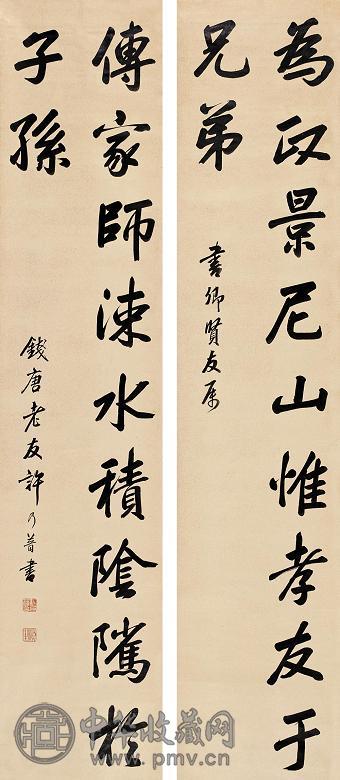 為政景尼山惟孝友于
兄弟
書卿賢友屬
傳家師涑水積陰騭於
子孫
錢唐老友許乃普書
中华收藏网
www.pmv.cn